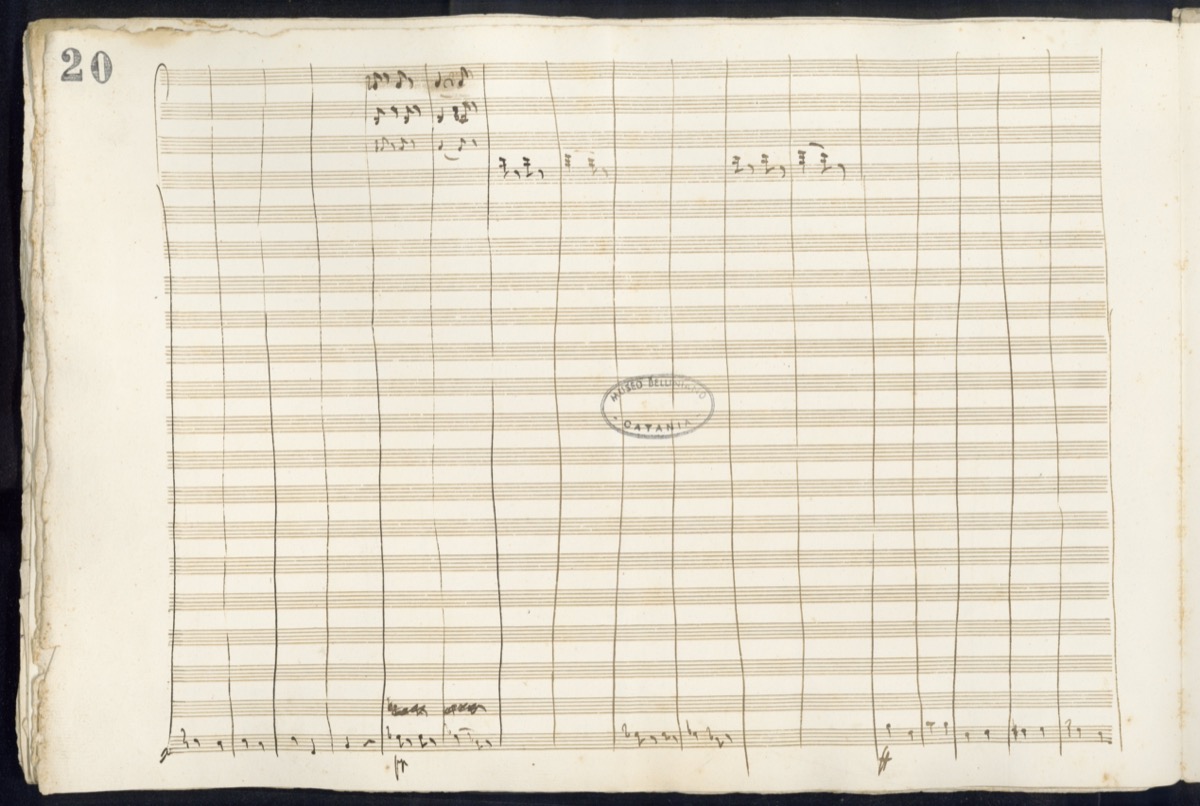 20
MUSEO BELLINIANO
- CATANIA -
pp
ff